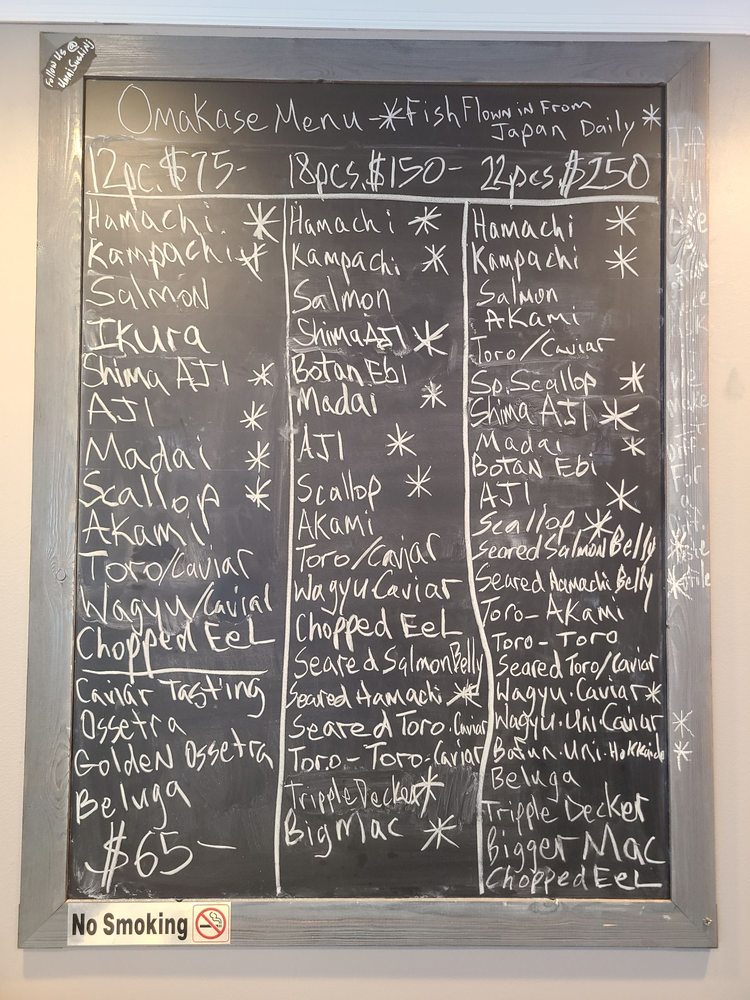 Follow Us @
UmaiSushiNJ
Omakase Menu - *Fish Flown in From
Japan Daily *
12pc. $75-
Hamachi. *
Kampachi *
Salmon
Ikura
Shima AJI *
AJI *
Madai *
Scallop *
Akami
Toro/Caviar
Wagyu/Caviar
Chopped Eel
Caviar Tasting
Ossetra
Golden Ossetra
Beluga
$65-
18pcs. $150-
Hamachi *
Kampachi *
Salmon
Shima AJI *
Botan Ebi
Madai *
AJI *
Scallop *
Akami
Toro/Caviar
Wagyu Caviar
Chopped Eel
Seared Salmon Belly
Seared Hamachi *
Seared Toro. Caviar
Toro-Toro-Caviar
Tripple Decker *
Big Mac *
22pcs. $250
Hamachi *
Kampachi *
Salmon
Akami
Toro/Caviar
Sp. Scallop *
Shima AJI *
Madai *
Botan Ebi
AJI *
Scallop *
Seared Salmon Belly
Seared Hamachi Belly
Toro-Akami
Toro-Toro
Seared Toro/Caviar
Wagyu. Caviar *
Wagyu. Uni Caviar *
Bafun. Uni. Hokkaido *
Beluga
Tripple Decker
Bigger Mac
Chopped Eel
make
it
diff.
For
a
diff.
No Smoking